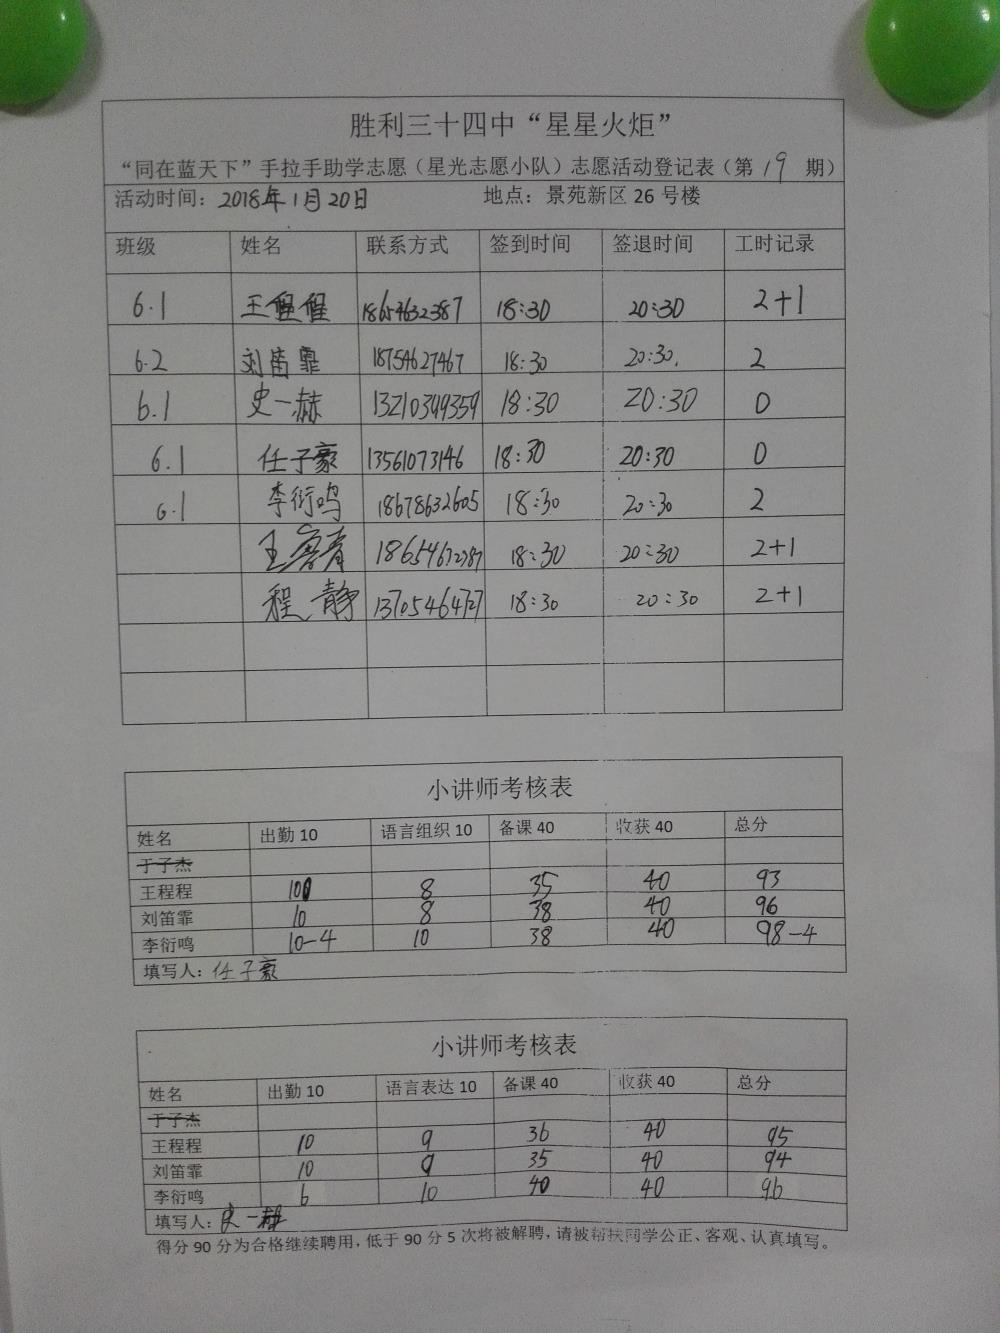 胜利三十四中“星星火炬”
“同在蓝天下”手拉手助学志愿（星光志愿小队）志愿活动登记表（第19期）
活动时间：2018年1月20日 地点：景苑新区26号楼
班级 姓名 联系方式 签到时间 签退时间 工时记录
6.1 王程程 18654632387 18:30 20:30 2+1
6.2 刘笛霏 18754627467 18:30 20:30. 2
6.1 史一赫 13210399359 18:30 20:30 0
6.1 任子豪 13561073146 18:30 20:30 0
6.1 李衍鸣 18678632605 18:30 20:30 2
18:30 20:30 2+1
程静 13705464727 18:30 20:30 2+1
小讲师考核表
姓名 出勤10 语言组织10 备课40 收获40 总分
于子杰
王程程 10 8 35 40 93
刘笛霏 10 8 38 40 96
李衍鸣 10-4 10 38 40 98-4
填写人：任子豪
小讲师考核表
姓名 出勤10 语言表达10 备课40 收获40 总分
于子杰
王程程 10 9 36 40 95
刘笛霏 10 9 35 40 94
李衍鸣 6 10 40 40 96
填写人：史一赫
得分90分为合格继续聘用，低于90分5次将被解聘，请被帮扶同学公正、客观、认真填写。